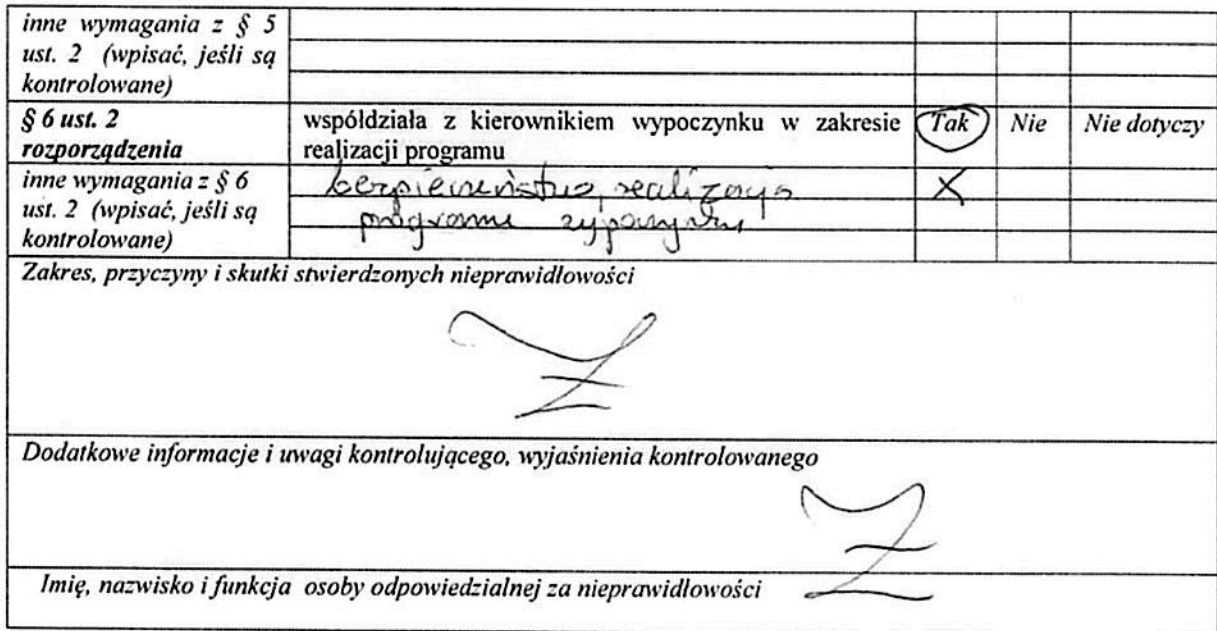 inne wymagania z § 5
ust. 2 (wpisać, jeśli są
kontrolowane)
§ 6 ust. 2
rozporządzenia
współdziała z kierownikiem wypoczynku w zakresie
realizacji programu
Tak Nie Nie dotyczy
inne wymagania z § 6
ust. 2 (wpisać, jeśli są
kontrolowane)
bezpieczeństwo, realizacja
programu wypoczynku
X
Zakres, przyczyny i skutki stwierdzonych nieprawidłowości
Dodatkowe informacje i uwagi kontrolującego, wyjaśnienia kontrolowanego
Imię, nazwisko i funkcja osoby odpowiedzialnej za nieprawidłowości